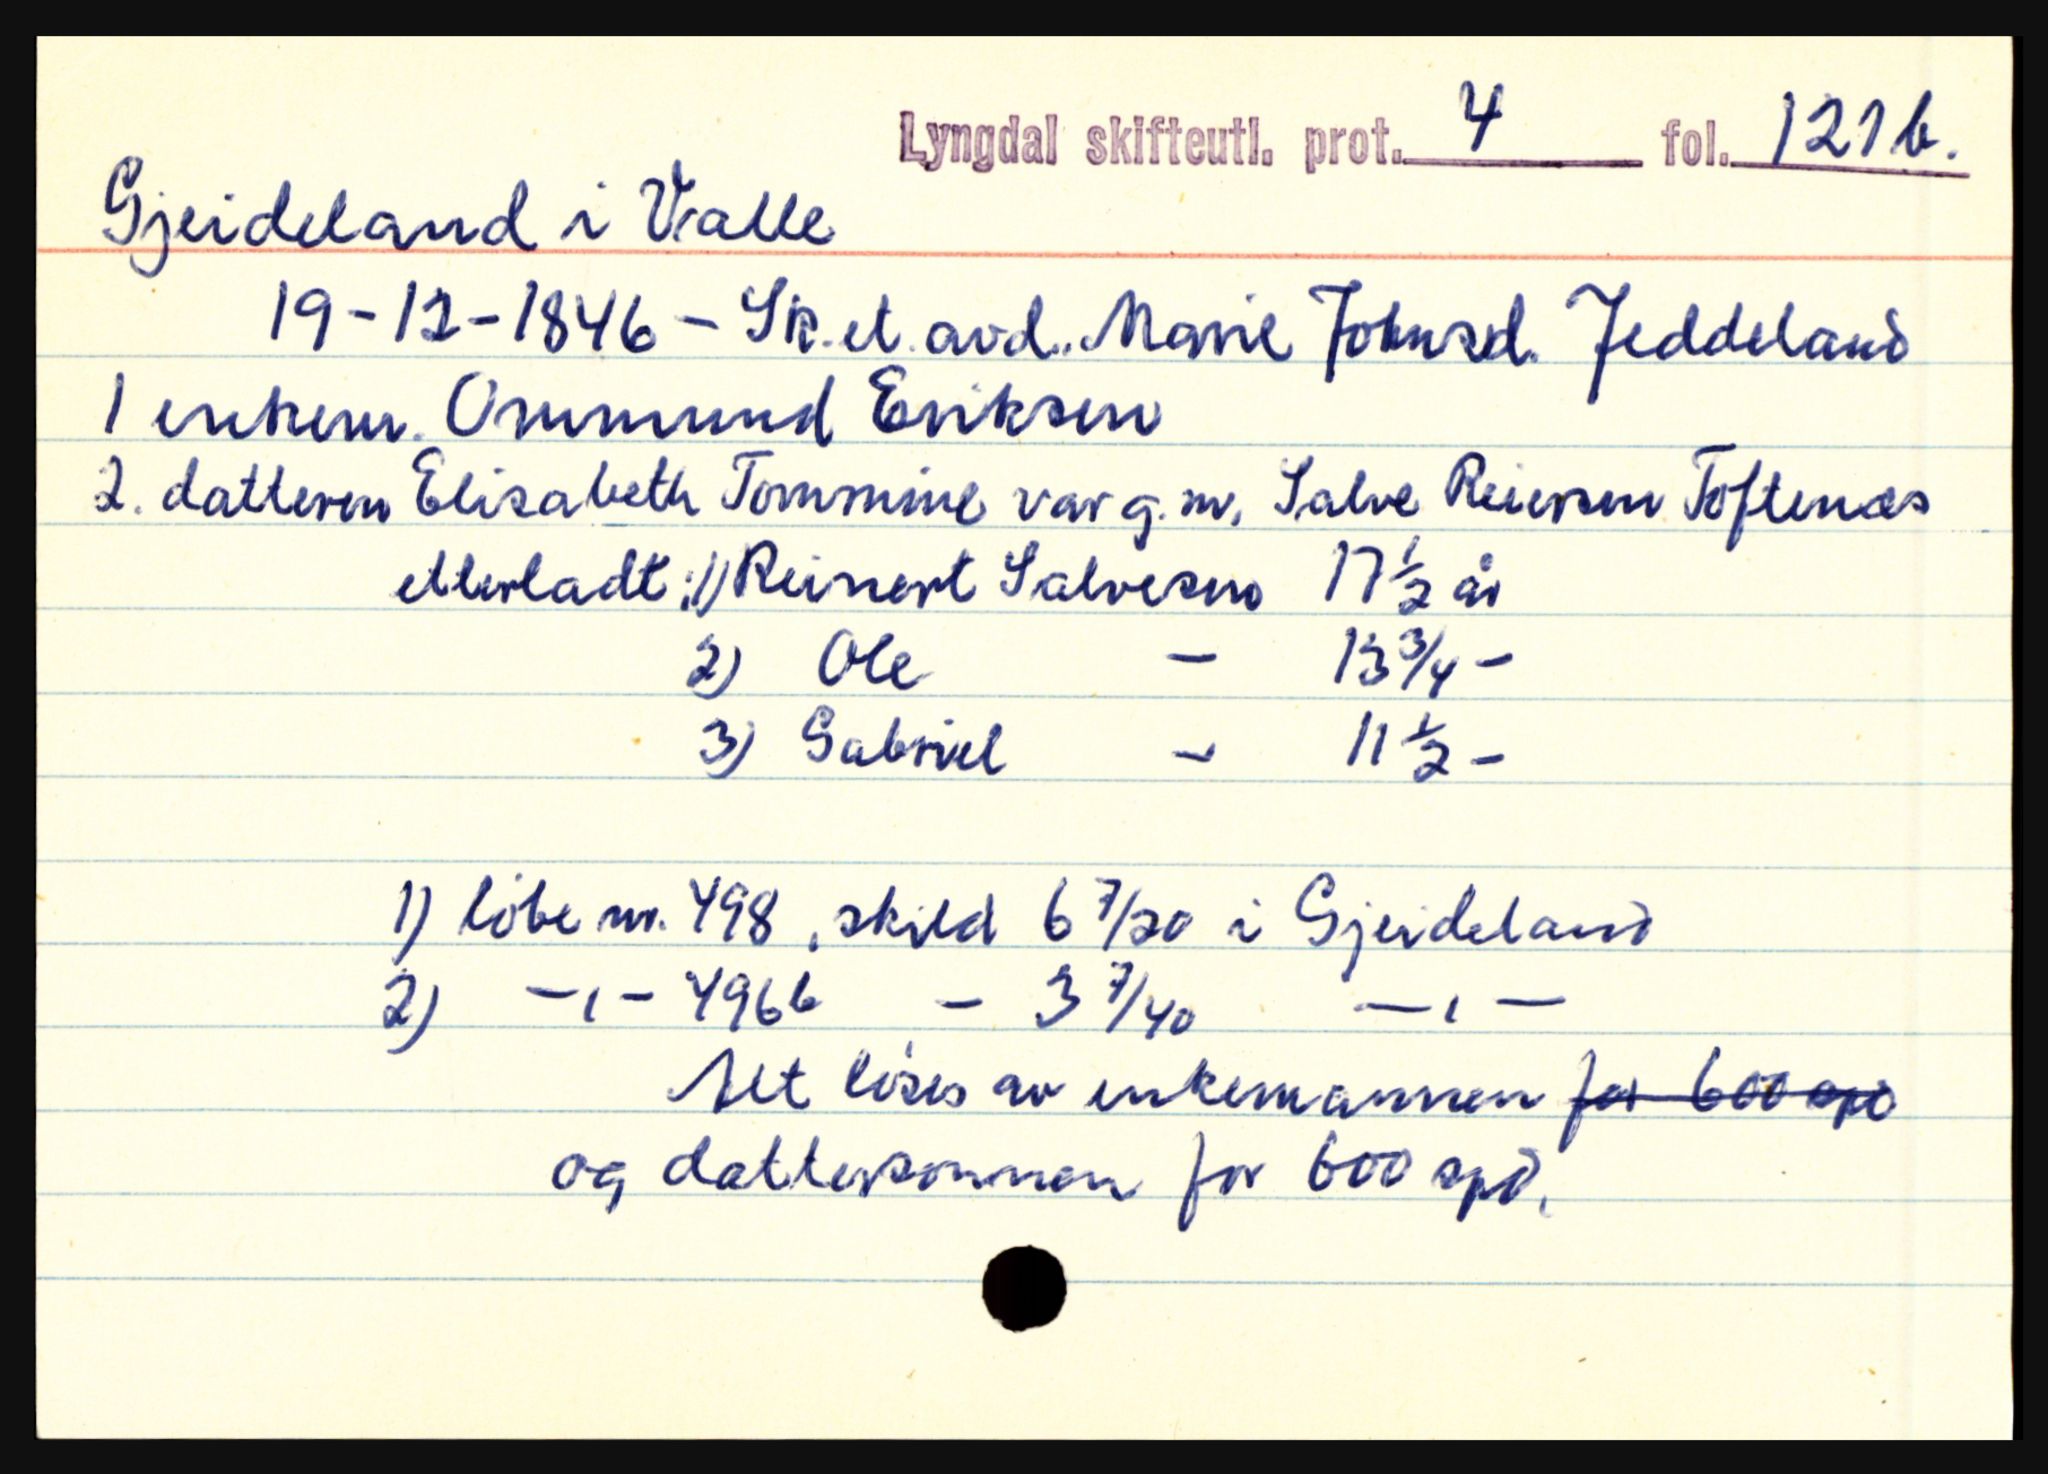 Lyngdal skifteutl. prot. 4 fol. 121b.
Gjeideland i Valle
19-12-1846 - Sk. et. avd. Marie Johnsd. Jeddeland
1 enkem. Ommund Eriksen
2. datteren Elisabeth Tommine var g.m. Salve Reiersen Toftenæs
etterladt: 1) Reinert Salvesen 17 1/2 år
2) Ole - 13 3/4 -
3) Gabriel - 11 1/2 -
1) löbe nr. 498, skyld 6 7/20 i Gjeideland
2) -,- 496b - 3 7/40 -,-
Alt löses av enkemannen for 600 spd
og dattersønnen for 600 spd.